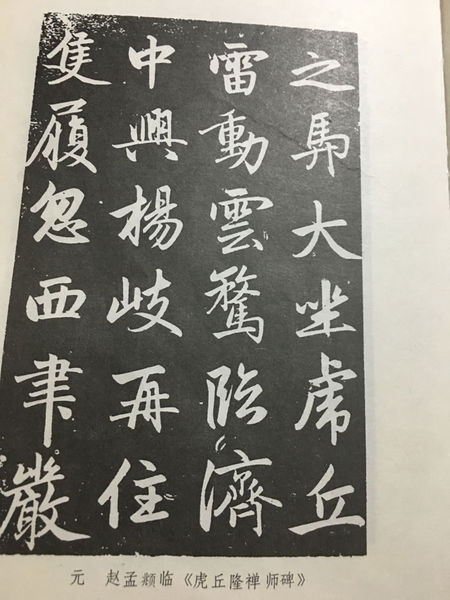 之馬大坐虎丘
雷動雲鶩臨濟
中興楊岐再住
隻履忽西聿嚴
元 赵孟頫临《虎丘隆禅师碑》